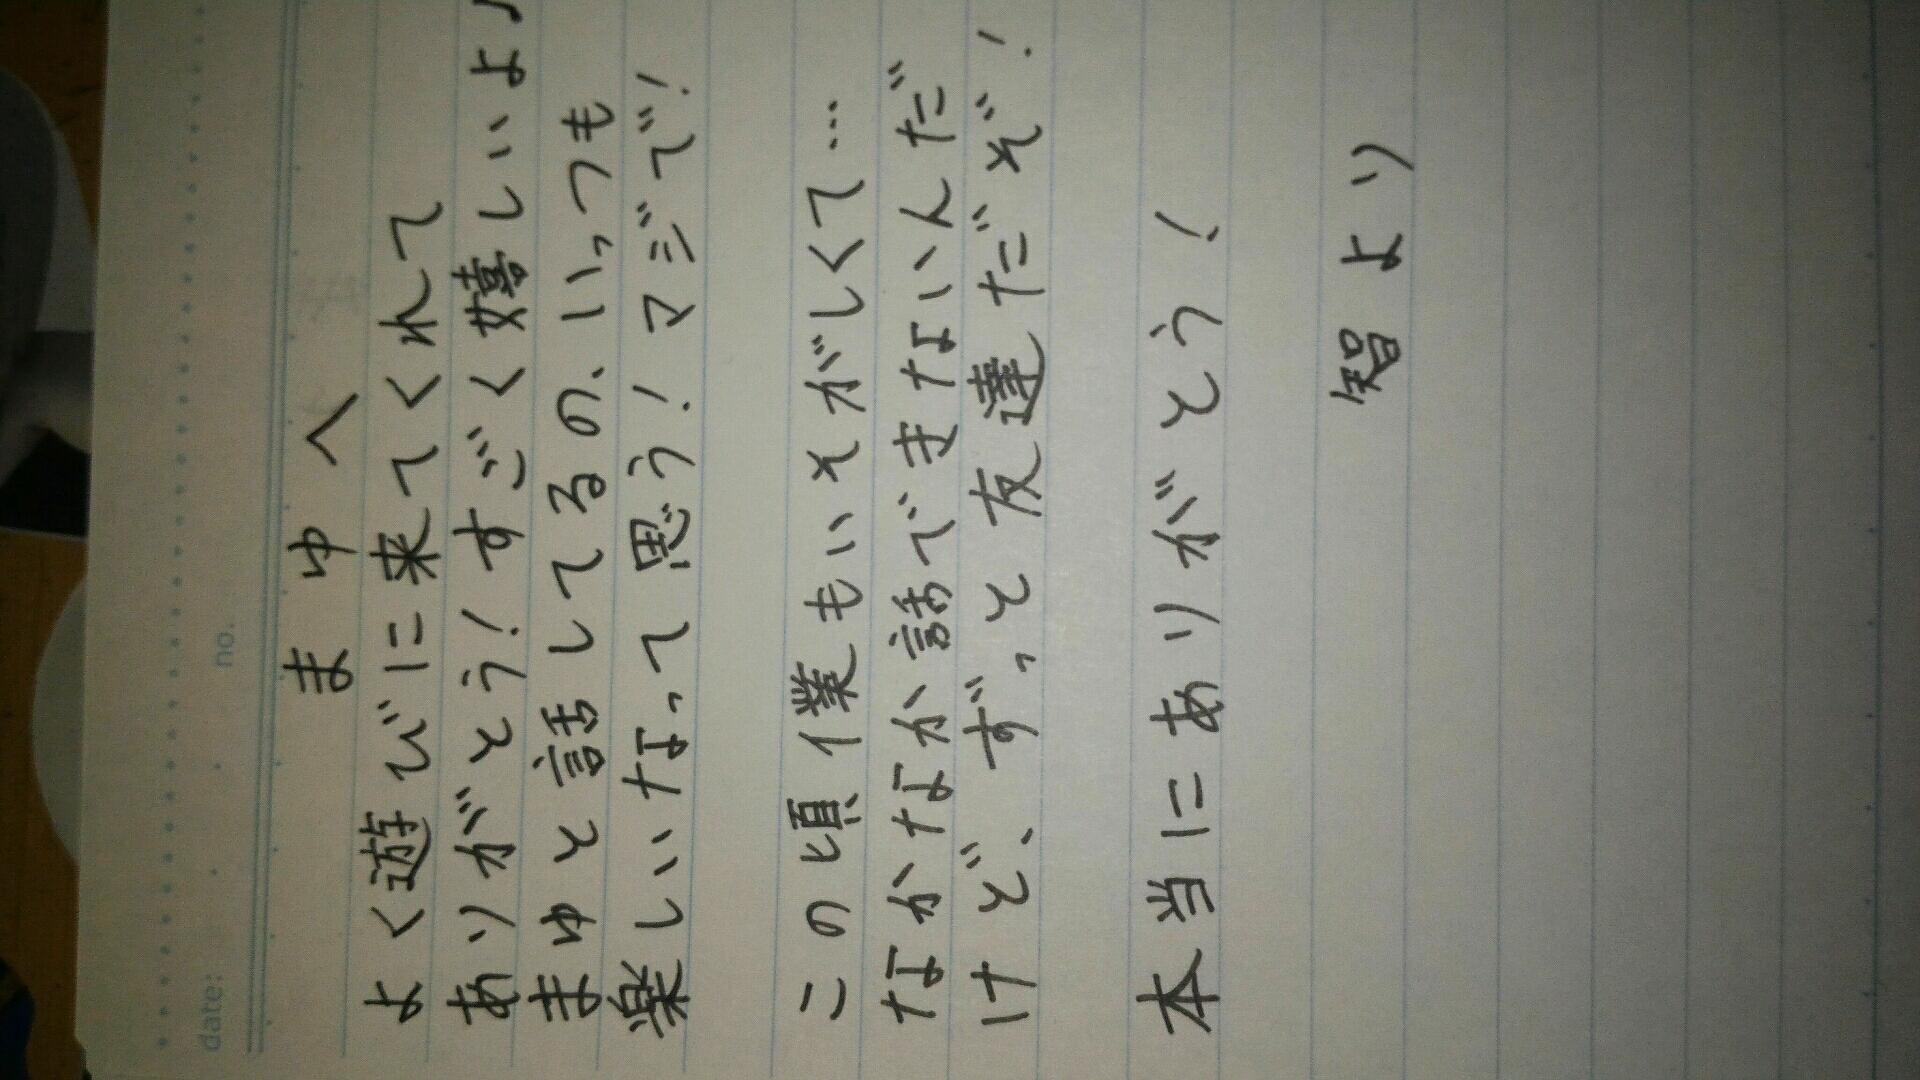 date:
no.
まゆへ
よく遊びに来てくれて
ありがとう!すごく嬉しいよ♪
まゆと話してるの、いっつも
楽しいなって思う!マジで!
この頃作業もいそがしくて…
なかなか話できないんだ
けど、ずっと友達だぞ!
本当にありがとう!
智より